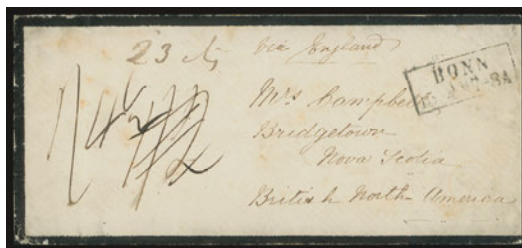 23
via England
BONN
Mrs Campbell
Bridgetown
Nova Scotia
British North America